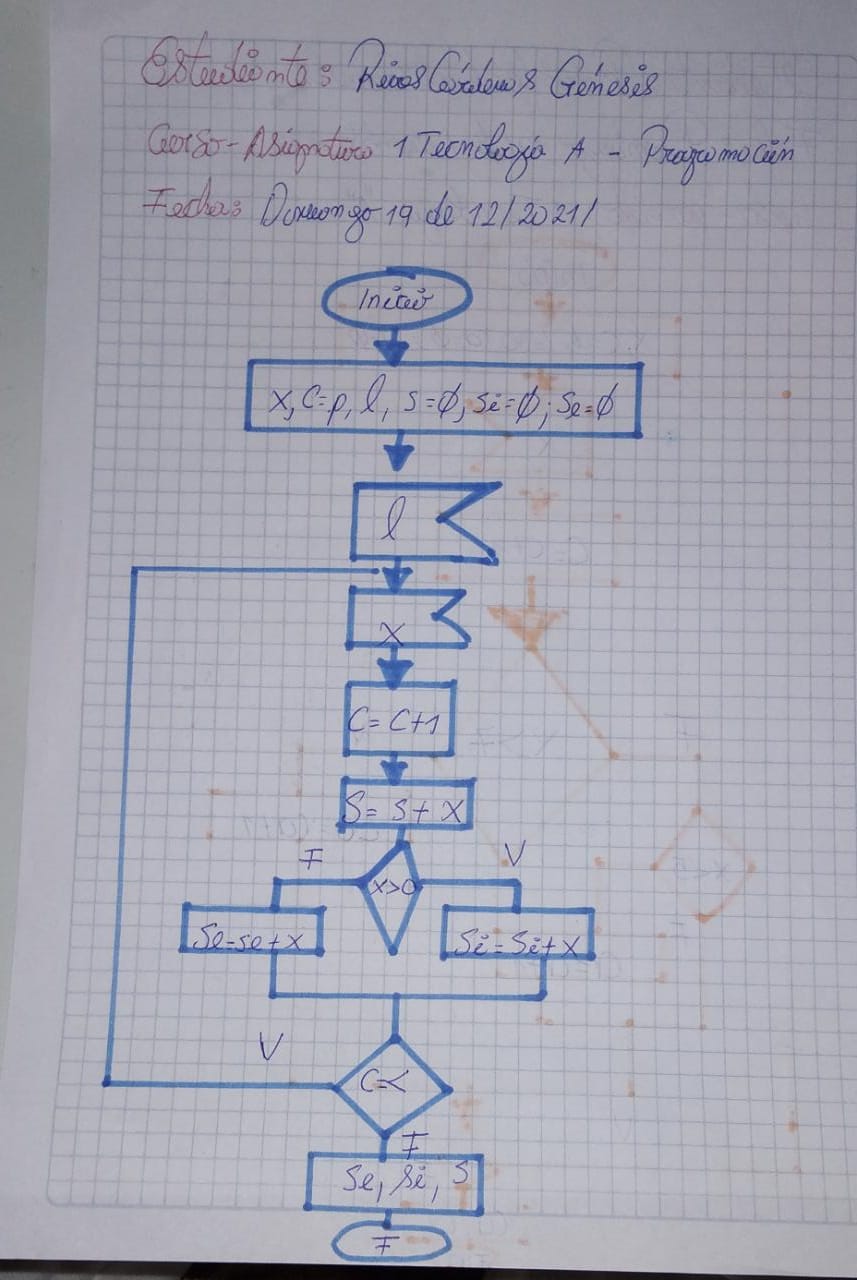 Estudiante: Rivas Cárdenas Génesis
Curso-Asignatura 1 Tecnología A - Programación
Fecha: Domingo 19 de 12/2021/
Inicio
x, C=p, l, s=ϕ, Si=ϕ; Se=ϕ
l
x
C= C+1
S= s+ x
F V
x>0
Se=se+x Si=Si+x
V
C=<
F
Se, Si, S
F